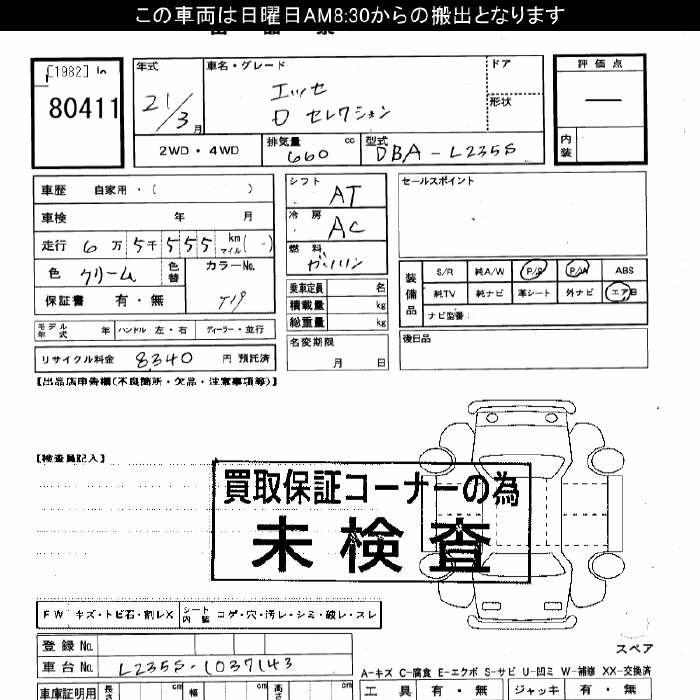 この車両は日曜日AM8:30からの搬出となります
[1982] In
80411
年式
21/3月
車名・グレード
エッセ
D セレクション
ドア
形状
評価点
―
内装
2WD・4WD
排気量 660 cc
型式 DBA-L235S
車歴 自家用・( )
車検 年 月
走行 6万5千555 km マイル (-)
色 クリーム 色替
カラーNo. T19
保証書 有・無
シフト AT
冷房 AC
燃料 ガソリン
乗車定員 名
積載量 kg
総重量 kg
名変期限 月 日
セールスポイント
装備品
S/R 純A/W P/S P/W ABS
純TV 純ナビ 革シート 外ナビ エアB
ナビ型番:
後日品
モデル年式 年 ハンドル 左・右 ディーラー・並行
リサイクル料金 8340 円 預託済
【出品店申告欄(不良箇所・欠品・注意事項等)】
【検査員記入】
買取保証コーナーの為
未検査
FW キズ・トビ石・割レX シート内装 コゲ・穴・汚レ・シミ・破レ・スレ
スペア
登録No.
車台No. L235S-1037143
A-キズ C-腐食 E-エクボ S-サビ U-凹ミ W-補修 XX-交換済
車庫証明用 長さ cm 幅 cm 高さ cm
工具 有・無 ジャッキ 有・無